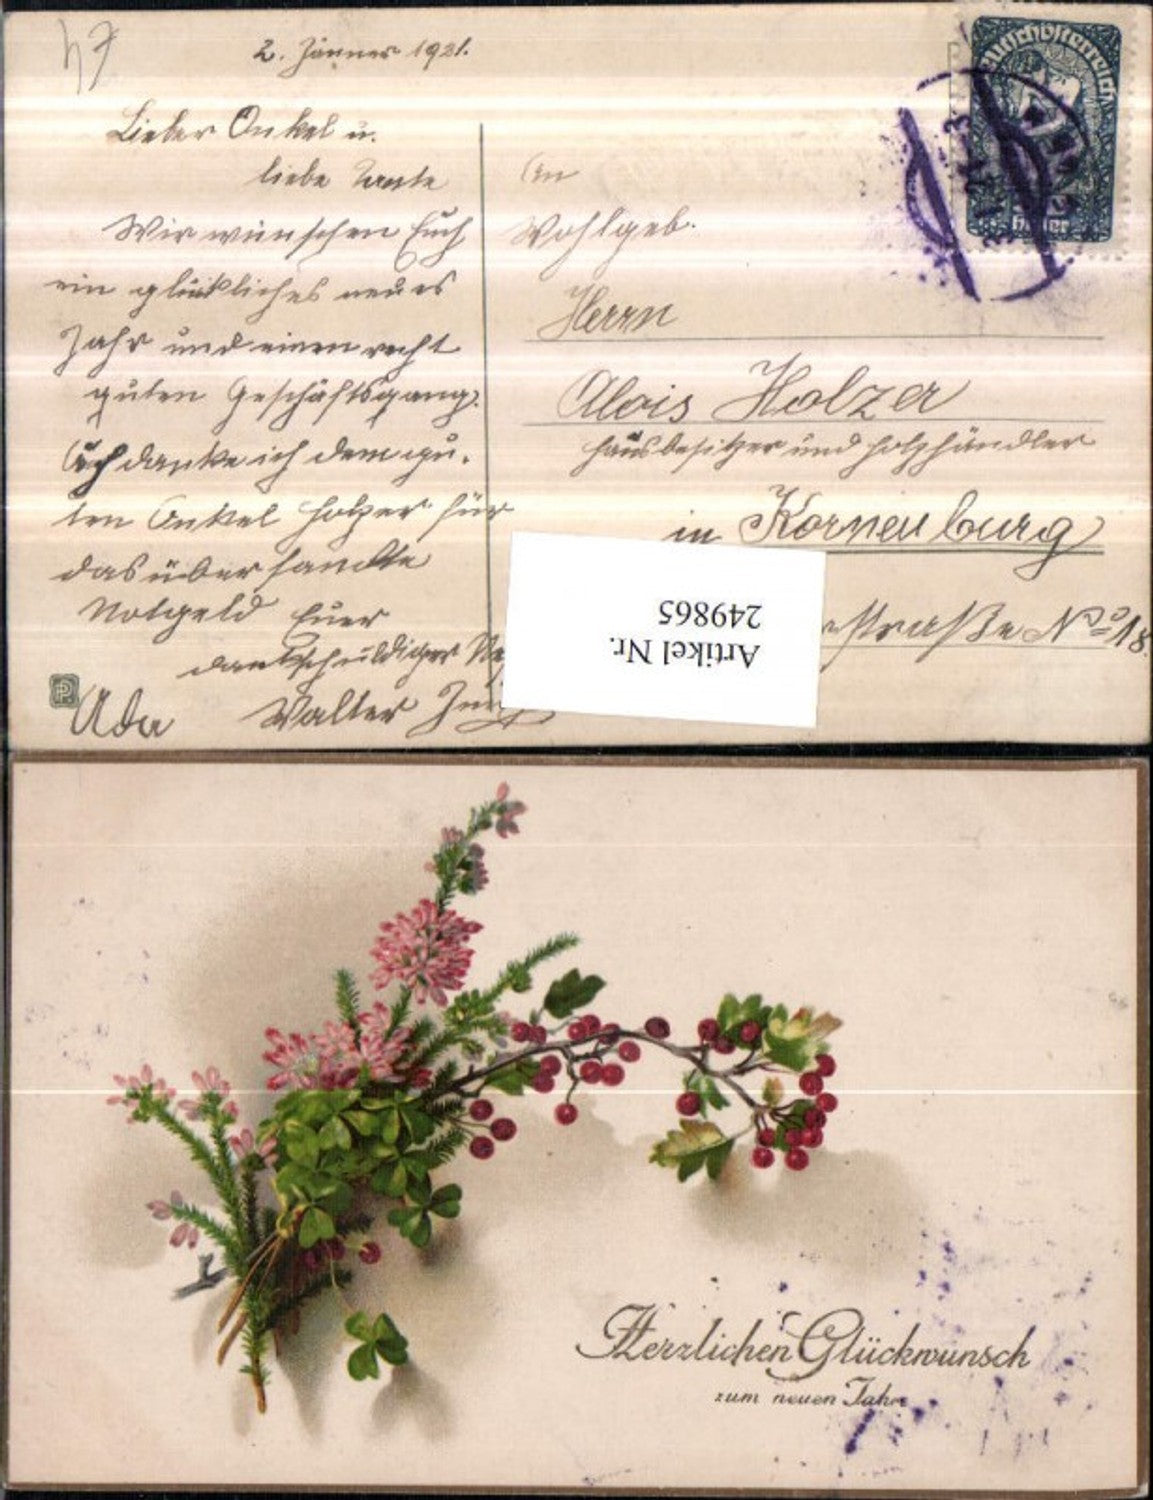 2. Jänner 1921.
Lieber Onkel u.
liebe Tante
Wir wünschen Euch
ein glückliches neues
Jahr und einen recht
guten Geschäftsgang.
Auch danke ich dem gu-
ten Onkel Holzer für
das übersandte
Notgeld Euer
dankschuldiger
Ada Walter
An
Wohlgeb.
Herrn
Alois Holzer
Hausbesitzer und Holzhändler
in Korneuburg
straße No 18.
Deutschösterreich
Heller
Artikel Nr.
249865
Herzlichen Glückwunsch
zum neuen Jahre